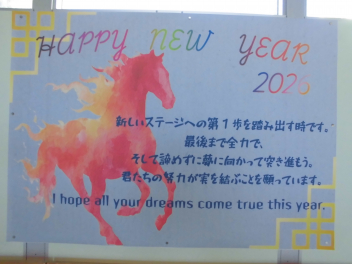 HAPPY NEW YEAR
2026
新しいステージへの第1歩を踏み出す時です。
最後まで全力で、
そして諦めずに夢に向かって突き進もう。
君たちの努力が実を結ぶことを願っています。
I hope all your dreams come true this year.